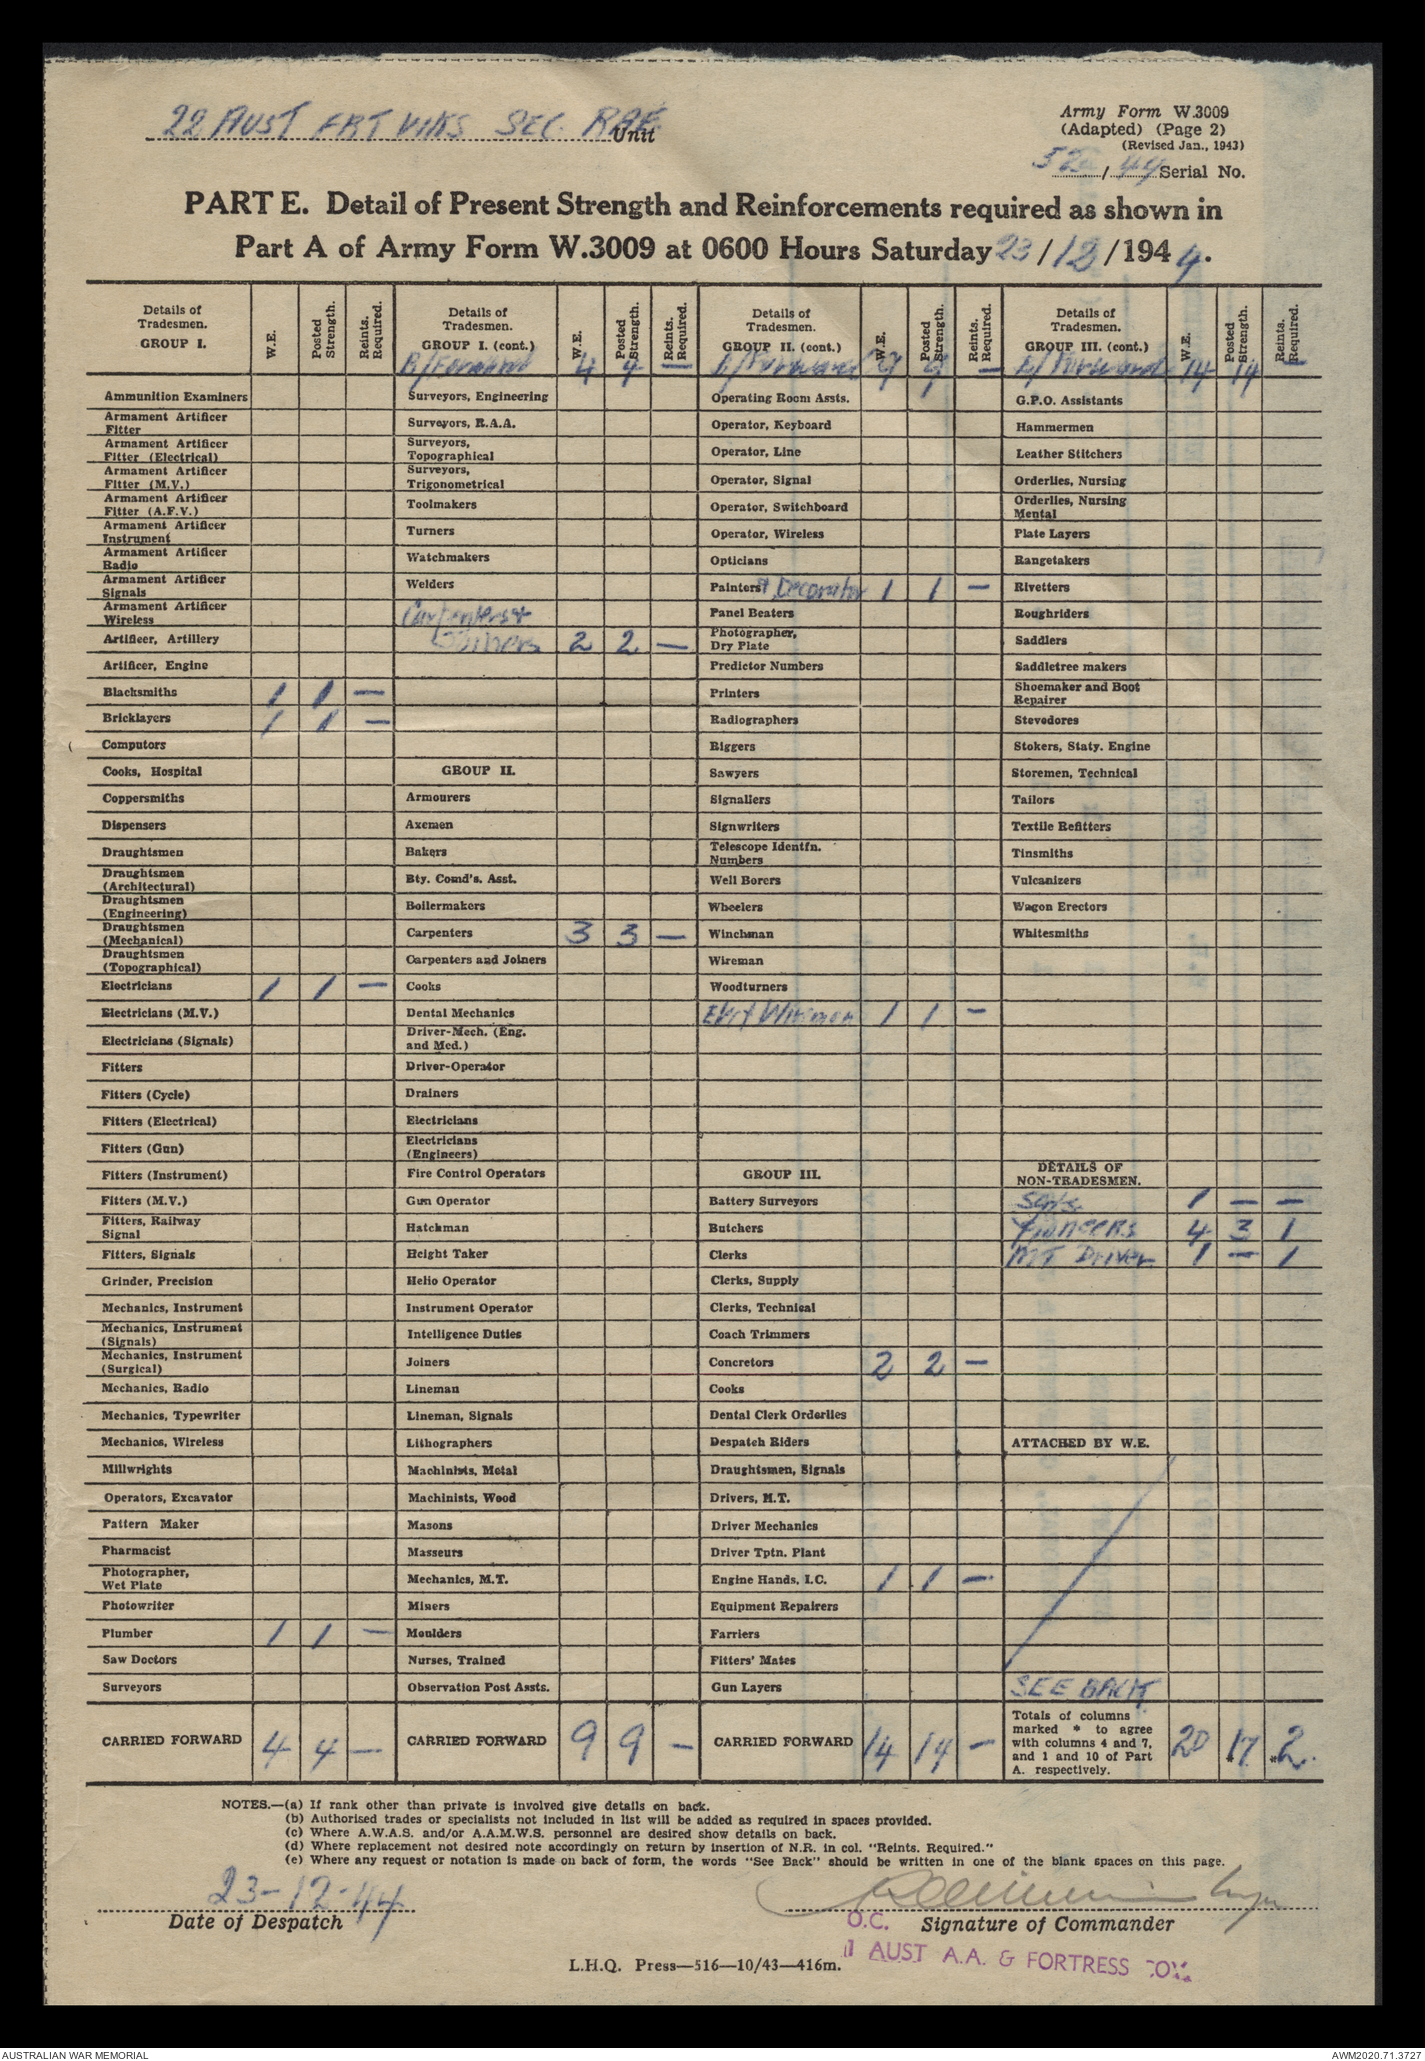 22 AUST FRT WKS SEC. RAE. Unit
Army Form W.3009
(Adapted) (Page 2)
(Revised Jan., 1943)
52 / 44 Serial No.
PART E. Detail of Present Strength and Reinforcements required as shown in
Part A of Army Form W.3009 at 0600 Hours Saturday 23 / 12 / 1944.
Details of Tradesmen. GROUP I. W.E. Posted Strength. Reints. Required.
Ammunition Examiners
Armament Artificer
Fitter
Armament Artificer
Fitter (Electrical)
Armament Artificer
Fitter (M.V.)
Armament Artificer
Fitter (A.F.V.)
Armament Artificer
Instrument
Armament Artificer
Radio
Armament Artificer
Signals
Armament Artificer
Wireless
Artificer, Artillery
Artificer, Engine
Blacksmiths 1 1 —
Bricklayers 1 1 —
Computors
Cooks, Hospital
Coppersmiths
Dispensers
Draughtsmen
Draughtsmen
(Architectural)
Draughtsmen
(Engineering)
Draughtsmen
(Mechanical)
Draughtsmen
(Topographical)
Electricians 1 1 —
Electricians (M.V.)
Electricians (Signals)
Fitters
Fitters (Cycle)
Fitters (Electrical)
Fitters (Gun)
Fitters (Instrument)
Fitters (M.V.)
Fitters, Railway
Signal
Fitters, Signals
Grinder, Precision
Mechanics, Instrument
Mechanics, Instrument
(Signals)
Mechanics, Instrument
(Surgical)
Mechanics, Radio
Mechanics, Typewriter
Mechanics, Wireless
Millwrights
Operators, Excavator
Pattern Maker
Pharmacist
Photographer,
Wet Plate
Photowriter
Plumber 1 1 —
Saw Doctors
Surveyors
CARRIED FORWARD 4 4 —
Details of Tradesmen. GROUP I. (cont.) W.E. Posted Strength. Reints. Required.
B/Forward 4 4 —
Surveyors, Engineering
Surveyors, R.A.A.
Surveyors,
Topographical
Surveyors,
Trigonometrical
Toolmakers
Turners
Watchmakers
Welders
Carpenters &
Joiners 2 2 —
GROUP II.
Armourers
Axemen
Bakers
Bty. Comd's. Asst.
Boilermakers
Carpenters 3 3 —
Carpenters and Joiners
Cooks
Dental Mechanics
Driver-Mech. (Eng.
and Med.)
Driver-Operator
Drainers
Electricians
Electricians
(Engineers)
Fire Control Operators
Gun Operator
Hatchman
Height Taker
Helio Operator
Instrument Operator
Intelligence Duties
Joiners
Lineman
Lineman, Signals
Lithographers
Machinists, Metal
Machinists, Wood
Masons
Masseurs
Mechanics, M.T.
Miners
Moulders
Nurses, Trained
Observation Post Assts.
CARRIED FORWARD 9 9 —
Details of Tradesmen. GROUP II. (cont.) W.E. Posted Strength. Reints. Required.
B/Forward 9 9 —
Operating Room Assts.
Operator, Keyboard
Operator, Line
Operator, Signal
Operator, Switchboard
Operator, Wireless
Opticians
Painters & Decorator 1 1 —
Panel Beaters
Photographer,
Dry Plate
Predictor Numbers
Printers
Radiographers
Riggers
Sawyers
Signallers
Signwriters
Telescope Identfn.
Numbers
Well Borers
Wheelers
Winchman
Wireman
Woodturners
Elect Wireman 1 1 —
GROUP III.
Battery Surveyors
Butchers
Clerks
Clerks, Supply
Clerks, Technical
Coach Trimmers
Concretors 2 2 —
Cooks
Dental Clerk Orderlies
Despatch Riders
Draughtsmen, Signals
Drivers, M.T.
Driver Mechanics
Driver Tptn. Plant
Engine Hands, I.C. 1 1 —
Equipment Repairers
Farriers
Fitters' Mates
Gun Layers
CARRIED FORWARD 14 14 —
Details of Tradesmen. GROUP III. (cont.) W.E. Posted Strength. Reints. Required.
B/Forward 14 14 —
G.P.O. Assistants
Hammermen
Leather Stitchers
Orderlies, Nursing
Orderlies, Nursing
Mental
Plate Layers
Rangetakers
Rivetters
Roughriders
Saddlers
Saddletree makers
Shoemaker and Boot
Repairer
Stevedores
Stokers, Staty. Engine
Storemen, Technical
Tailors
Textile Refitters
Tinsmiths
Vulcanizers
Wagon Erectors
Whitesmiths
DETAILS OF
NON-TRADESMEN.
Sgts. 1 — —
Pioneers 4 3 1
MT Driver 1 — 1
ATTACHED BY W.E.
SEE BACK
Totals of columns
marked * to agree
with columns 4 and 7,
and 1 and 10 of Part
A. respectively. 20 *17 *2.
NOTES.—(a) If rank other than private is involved give details on back.
(b) Authorised trades or specialists not included in list will be added as required in spaces provided.
(c) Where A.W.A.S. and/or A.A.M.W.S. personnel are desired show details on back.
(d) Where replacement not desired note accordingly on return by insertion of N.R. in col. "Reints. Required."
(e) Where any request or notation is made on back of form, the words "See Back" should be written in one of the blank spaces on this page.
23-12-44
Date of Despatch
O.C. Signature of Commander
1 AUST A.A. & FORTRESS COY.
L.H.Q. Press—516—10/43—416m.
AUSTRALIAN WAR MEMORIAL
AWM2020.71.3727